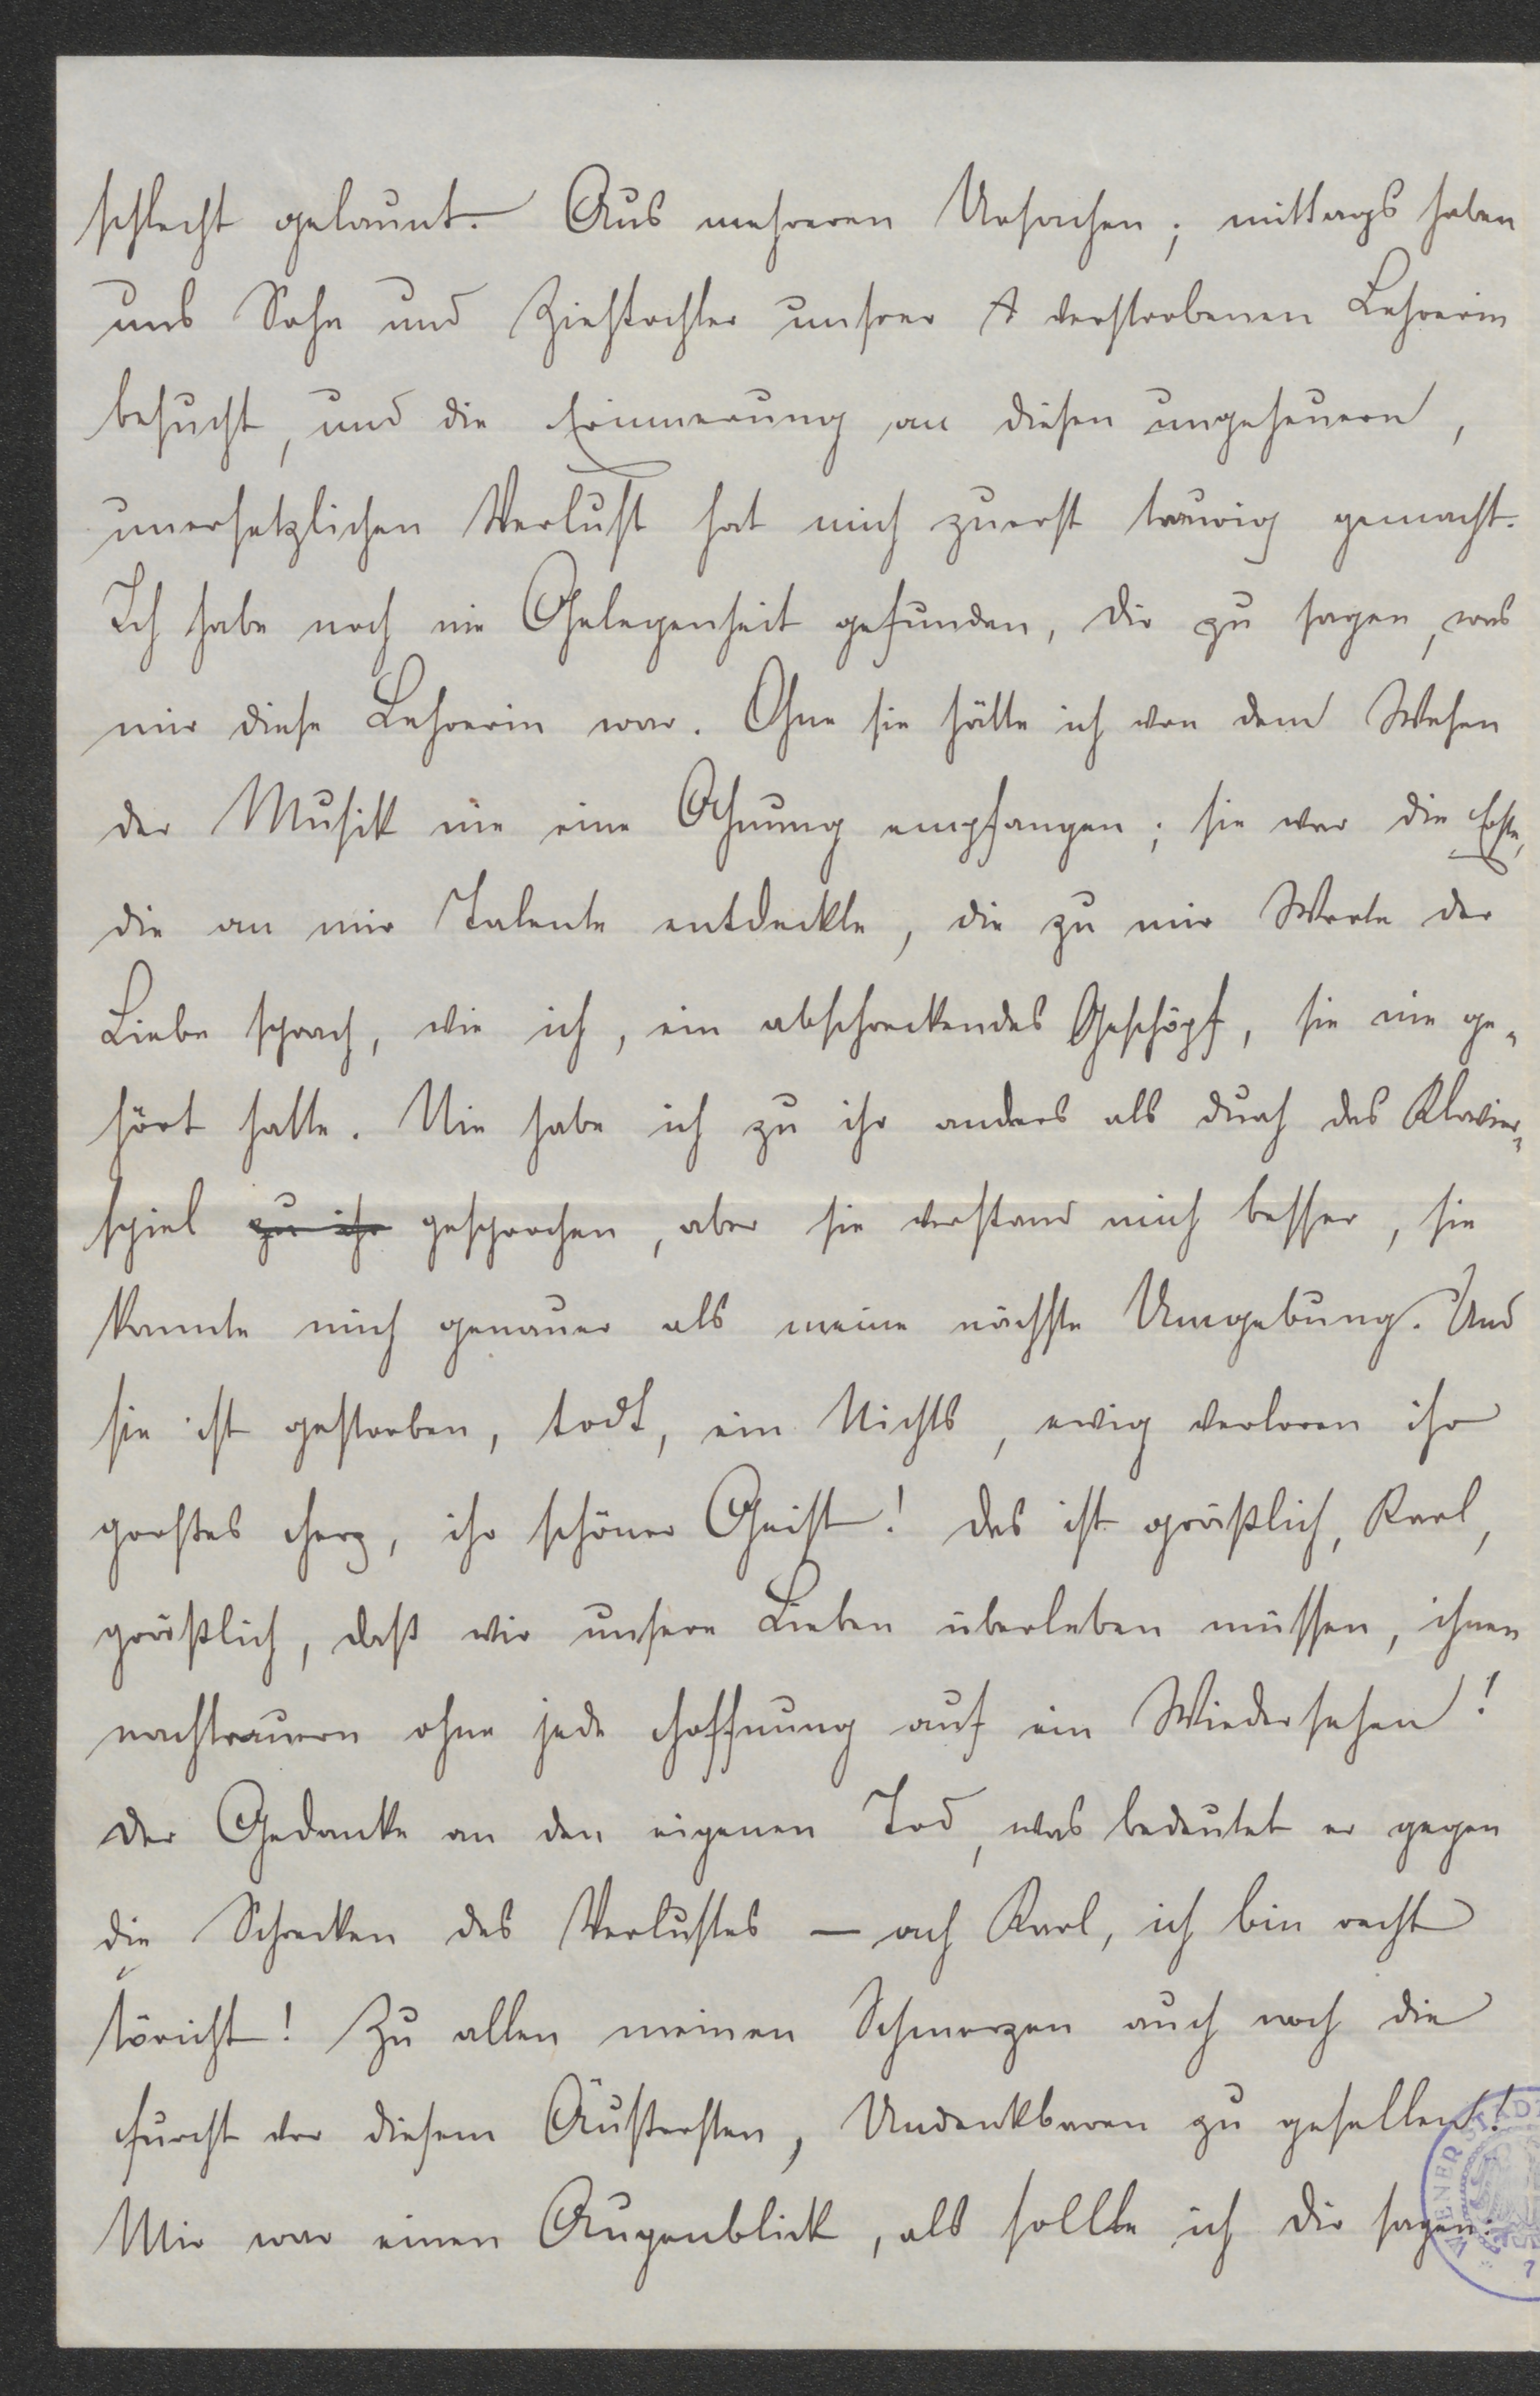 schlecht gelaunt. Aus mehreren Ursachen; mittags haben
uns Sohn und Ziehtochter unsrer verstorbenen Lehrerin
besucht, und die Erinnerung an diesen ungeheuern,
unersetzlichen Verlust hat mich zuerst traurig gemacht.
Ich habe noch nie Gelegenheit gefunden, Dir zu sagen, was
mir diese Lehrerin war. Ohne sie hätte ich von dem Wesen
der Musik nie eine Ahnung empfangen; sie war die Erste,
die an mir Talente entdeckte, die zu mir Worte der
Liebe sprach, wie ich, ein abschreckendes Geschöpf, sie nie ge-
hört hatte. Nie habe ich zu ihr anders als durch das Klavier-
spiel zu ihr gesprochen, aber sie verstand mich besser, sie
kannte mich genauer als meine nächste Umgebung. Und
sie ist gestorben, todt, ein Nichts, ewig verloren ihr
großes Herz, ihr schöner Geist! Das ist gräßlich, Karl,
gräßlich, daß wir unsere Lieben überleben müssen, ihnen
nachtrauern ohne jede Hoffnung auf ein Wiedersehen!
Der Gedanke an den eigenen Tod, was bedeutet er gegen
die Schrecken des Verlustes – ach Karl, ich bin recht
töricht! Zu allen meinen Schmerzen auch noch die
Furcht vor diesem Äußersten, Undenkbaren zu gesellen!
Mir war einen Augenblick, als sollte ich Dir sagen: